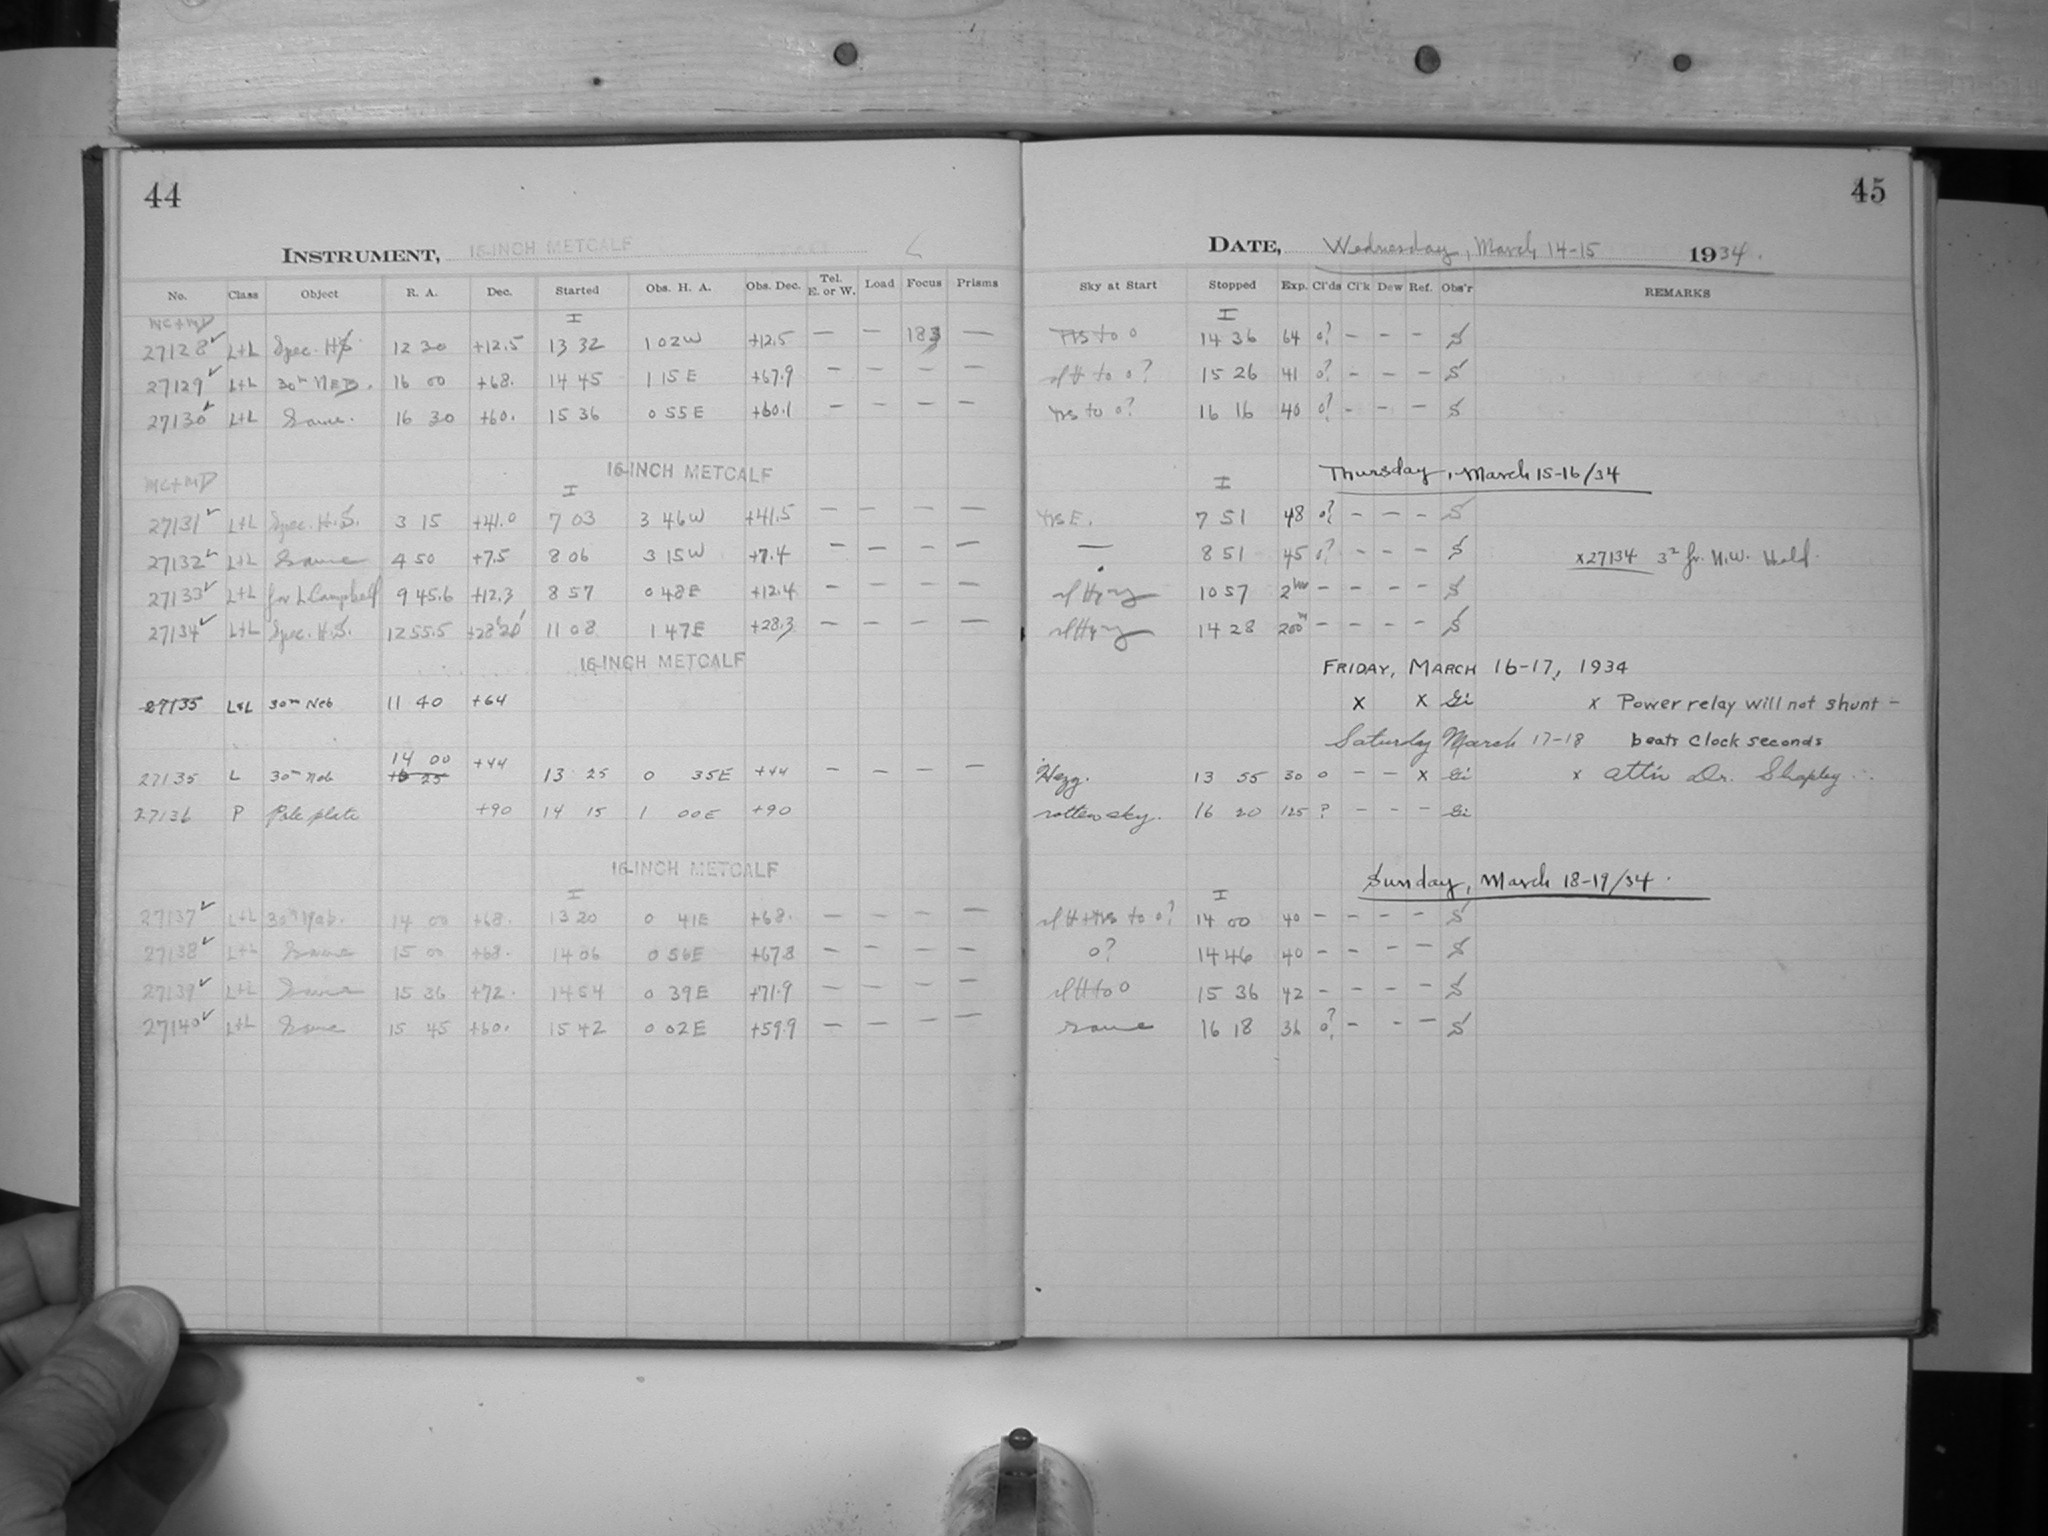 44
INSTRUMENT, 16-INCH METCALF
No. Class Object R. A. Dec. Started Obs. H. A. Obs. Dec. Tel. E. or W. Load Focus Prisms
MC+MD I
27128 L+L Spec. H.S. 12 30 +12.5 13 32 1 02W +12.5 — — 183 —
27129 L+L 30m Neb. 16 00 +68. 14 45 1 15E +67.9 — — — —
27130 L+L Same. 16 30 +60. 15 36 0 55E +60.1 — — — —
16-INCH METCALF
MC+MD I
27131 L+L Spec. H.S. 3 15 +41.0 7 03 3 46W +41.5 — — — —
27132 L+L Same 4 50 +7.5 8 06 3 15W +7.4 — — — —
27133 L+L for L. Campbell 9 45.6 +12.3 8 57 0 48E +12.4 — — — —
27134 L+L Spec. H.S. 12 55.5 +28°20' 11 08 1 47E +28.3 — — — —
16-INCH METCALF
27135 L+L 30m Neb 11 40 +64
14 00 +44
27135 L 30m Neb 25 13 25 0 35E +44 — — — —
27136 P Pole plate +90 14 15 1 00E +90
16-INCH METCALF
I
27137 L+L 30m Neb. 14 00 +68. 13 20 0 41E +68. — — — —
27138 L+L Same 15 00 +68. 14 06 0 56E +67.8 — — — —
27139 L+L Same 15 36 +72. 14 54 0 39E +71.9 — — — —
27140 L+L Same 15 45 +60. 15 42 0 02E +59.9 — — — —
45
DATE, Wednesday, March 14-15 1934.
Sky at Start Stopped Exp. Cl'ds Cl'k Dew Ref. Obs'r REMARKS
I
to 0 14 36 64 0? — — — S
to 0? 15 26 41 0? — — — S
to 0? 16 16 40 0? — — — S
Thursday, March 15-16/34
I
E. 7 51 48 0? — — — S
— 8 51 45 0? — — — S x27134 3 fr. N.W. Hold.
10 57 2hrs — — — — S
14 28 200m — — — — S
FRIDAY, MARCH 16-17, 1934
x x Gi x Power relay will not shunt —
Saturday March 17-18 beats clock seconds
Hazy. 13 55 30 0 — — x Gi x att'n Dr. Shapley
rotten sky. 16 20 125 ? — — — Gi
Sunday, March 18-19/34.
I
to 0? 14 00 40 — — — — S
0? 14 46 40 — — — — S
to 0 15 36 42 — — — — S
Same 16 18 36 0? — — — S